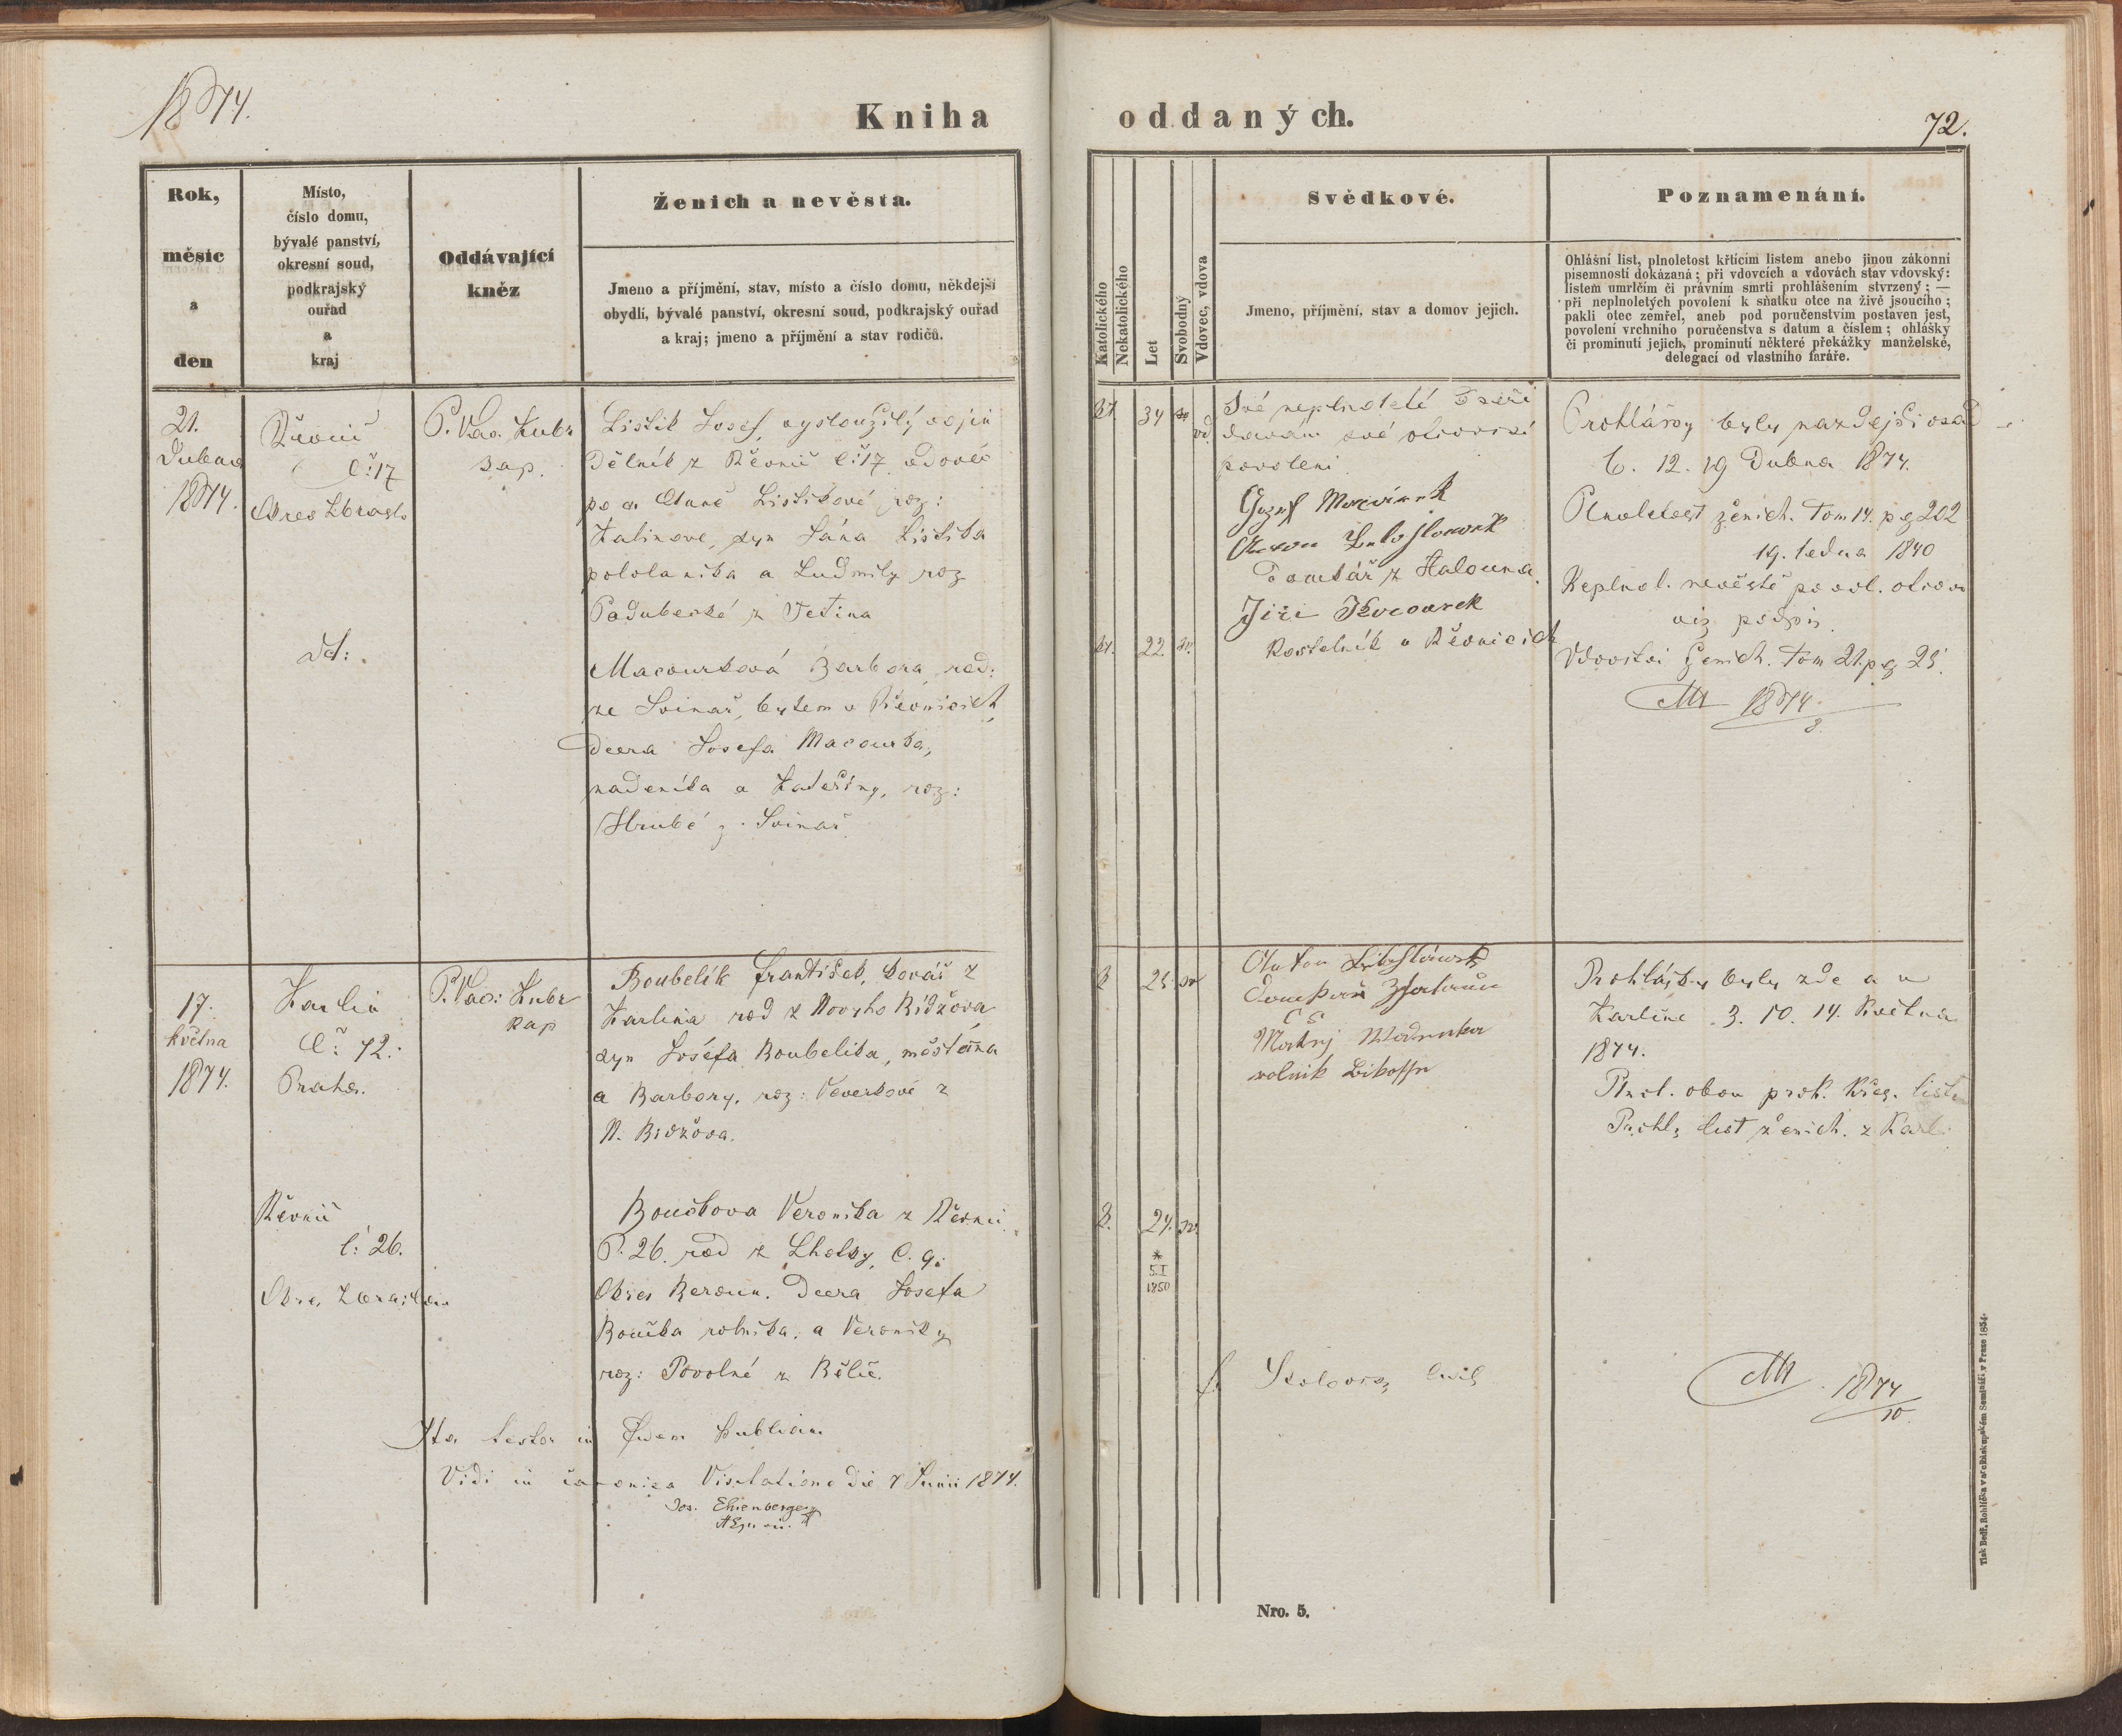 1874.
Kniha oddaných.
72.
Rok,
měsíc
a
den
Místo,
číslo domu,
bývalé panství,
okresní soud,
podkrajský
ouřad
a
kraj
Oddávající
kněz
Ženich a nevěsta.
Jmeno a příjmění, stav, místo a číslo domu, někdejší
obydlí, bývalé panství, okresní soud, podkrajský ouřad
a kraj; jmeno a příjmění a stav rodičů.
Katolického
Nekatolického
Let
Svobodný
Vdovec, vdova
Svědkové.
Jmeno, příjmění, stav a domov jejich.
Poznamenání.
Ohlášní list, plnoletost křticím listem anebo jinou zákonní
písemností dokázaná; při vdovcích a vdovách stav vdovský:
listem umrlčím či právním smrti prohlášením stvrzený; —
při neplnoletých povolení k sňatku otce na živě jsoucího;
pakli otec zemřel, aneb pod poručenstvím postaven jest,
povolení vrchního poručenstva s datum a číslem; ohlášky
či prominutí jejich, prominutí některé překážky manželské,
delegací od vlastního faráře.
21.
Dubna
1874.
Řevnic
č: 17
Okres Zbrasl.
P. Vác. Kubr
kap.
Listik Josef, vysloužilý vojín
Dělník z Řevnic č: 17 vdovec
po a Anně Listikové roz:
Kalinove, syn Jána Listika
pololaníka a Ludmily roz
Padubecké z Tetína
Id:
Macourková Barbora, rod:
ze Svinař, bytem v Řevnicích,
dcera Josefa Macourka,
nadeníka a Kateřiny, roz:
Hrubé z Svinař.
kt.
34
vd.
Své neplnoleté dceři
davám své otcovské
povolení
Jozef
Anton
Domkář z Halouna.
Jiří Kocourek
Kostelník v Řevnicích
kt.
22.
sv.
Prohlášky byly na zdejší osad
6. 12. 19 Dubna 1874.
Plnoletost ženich. Tom 14. pg 202
19. ledna 1840
Neplnol. nevěstě povol. otcov
viz podpis.
Vdovství ženich. Tom 21. pg 25.
1874
8.
17.
května
1874.
Karlin
Č: 72.
Praha.
P. Vác: Kubr
kap
Boubelík František, kovář z
Karlína rod z Novyho Bidžova
syn Josefa Boubelika, měšťana
a Barbory, roz: Veverkové z
N. Bidžova.
Řevnic
č: 26.
Okres Zbraslav
Boučkova Veronika z Řevnic
č. 26. rod z Lhotky, č. 9.
Okres Beroun. Dcera Josefa
Boučka rolníka, a Veroniky
roz: Povolné z Bělče.
Ita testor in fidem publicam
Vidi in canonica Visitatione die 7 Junii 1874.
Jos. Ehrenberger
k
25.
sv
Anton
Domkář z Halouna
Matěj
rolník
k.
24.
sv.
*
5.I
1850
Prohlášky byly zde a v
Karlíně 3. 10. 14. Května
1874.
Plnol. obou prok. křes. listem
Prohl. list ženich. z Karl.
1874
10.
Nro. 5.
Tisk Bedř. Rohlíčka v arcibiskupském Semináři v Praze 1854.